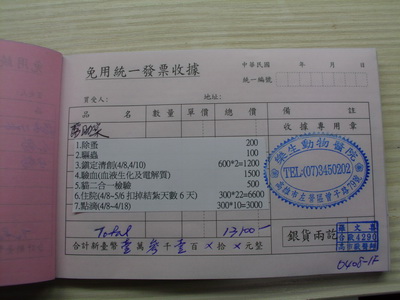 免用統一發票收據
中華民國 年 月 日
統一編號
買受人: 地址:
品名 數量 單價 總價 備註
收據專用章
1.除蚤 200
2.驅蟲 100
3.鎮定清創(4/8,4/10) 600*2=1200
4.驗血(血液生化及電解質) 1500
5.貓二合一檢驗 500
6.住院(4/8~5/6 扣掉結紮天數 6 天) 300*22=6600
7.點滴(4/8~4/18) 300*10=3000
樂生動物醫院
TEL:(07)3450202
高雄市左營區曾子路
Total 13100
合計新臺幣壹萬參千壹百×拾×元整
銀貨兩訖
0408-1F